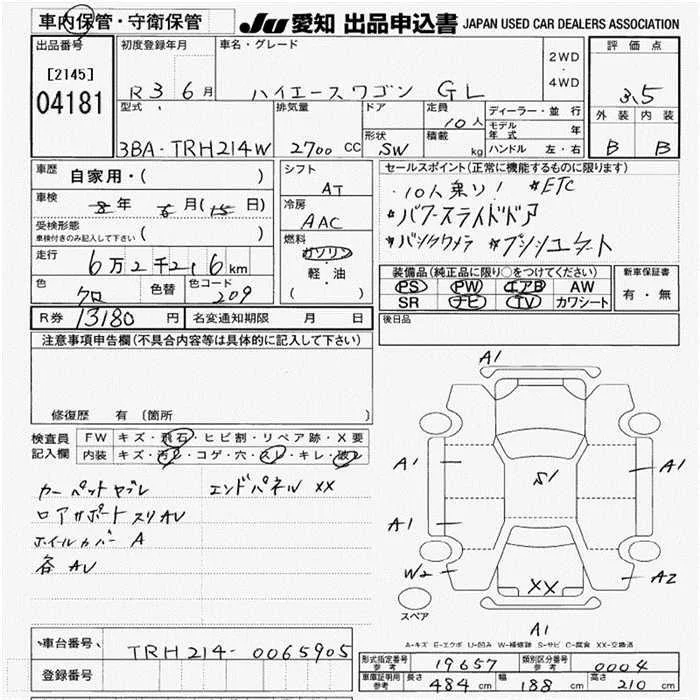 車内保管・守衛保管 JU 愛知 出品申込書 JAPAN USED CAR DEALERS ASSOCIATION
出品番号 初度登録年月 車名・グレード 評価点
[2145] 04181
R 3 6月 ハイエースワゴン GL 2WD・4WD 3.5
型式 排気量 ドア 定員 10人 ディーラー・並行 外装 内装
3BA-TRH214W 2700 CC 形状 SW 積載 kg モデル年式 年 ハンドル 左・右 B B
車歴 自家用・( ) シフト AT セールスポイント(正常に機能するものに限ります)
車検 8年 6月(15日) 冷房 AAC ・10人乗り! *ETC
受検形態 車検付きのみ記入して下さい ( ) *パワースライドドア
走行 6万2千216km 燃料 ガソリン 軽・油 ( ) *バックカメラ *プッシュスタート
色 クロ 色替 色コード 209
装備品(純正品に限り○をつけてください) 新車保証書
PS PW エアB AW 有・無
SR ナビ TV カワシート
R券 13180円 名変通知期限 月 日 後日品
注意事項申告欄(不具合内容等は具体的に記入して下さい)
修復歴 有 [箇所 ]
検査員記入欄 FW キズ・飛石・ヒビ割・リペア跡・X要
内装 キズ・汚レ・コゲ・穴・スレ・キレ・破レ
カーペットヤブレ エンドパネル XX
ロアサポート スリAU
ホイールカバー A
各 AU
A1
A1 S1
A1
W2 XX A2
スペア A1
A-キズ E-エクボ U-凹み W-補修跡 S-サビ C-腐食 XX-交換済
車台番号 TRH214-0065905
登録番号
形式指定番号 参考 19657 類別区分番号 参考 0004
車庫証明用 参考 長さ 484 cm 幅 188 cm 高さ 210 cm